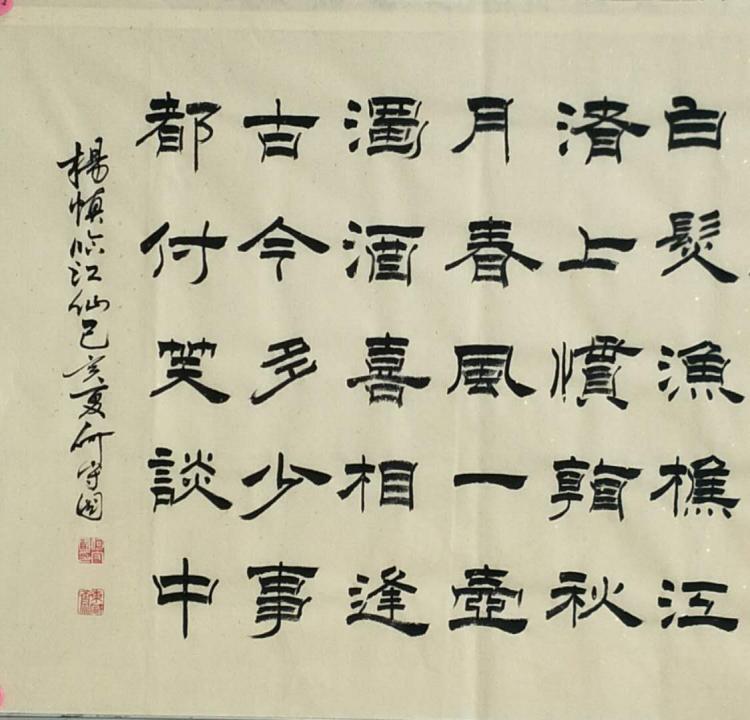 白髮漁樵江
渚上慣䩞秋
月春風一壺
濁酒喜相逢
古今多少事
都付笑談中
楊慎臨江仙己亥夏何守國